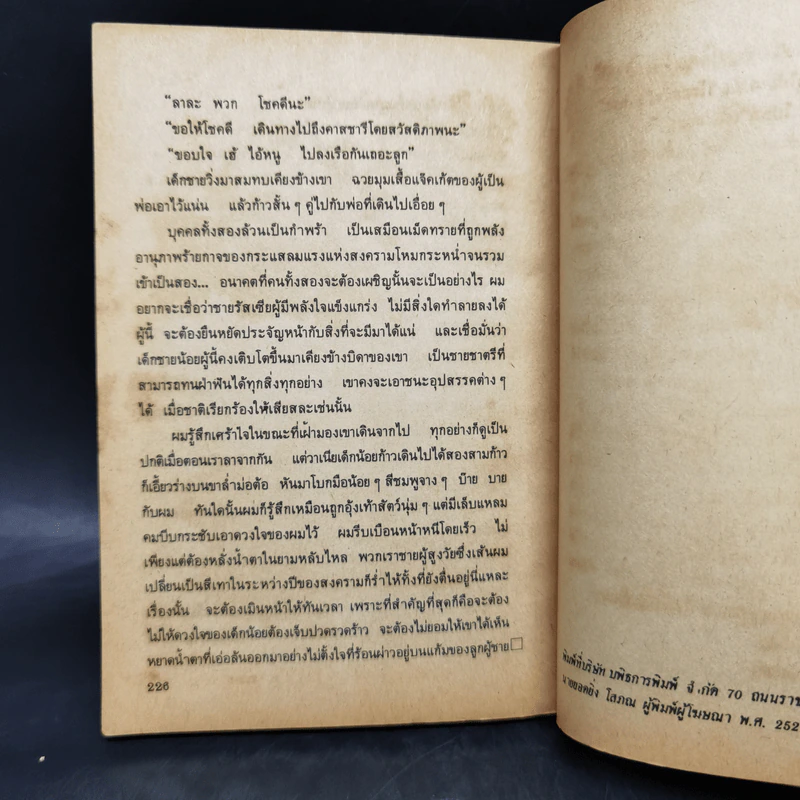 “ลาละ พวก โชคดีนะ”
“ขอให้โชคดี เดินทางไปถึงคาสชารีโดยสวัสดิภาพนะ”
“ขอบใจ เฮ้ ไอ้หนู ไปลงเรือกันเถอะลูก”
เด็กชายวิ่งมาสมทบเคียงข้างเขา ฉวยมุมเสื้อแจ็คเก้ตของผู้เป็น
พ่อเอาไว้แน่น แล้วก้าวสั้น ๆ คู่ไปกับพ่อที่เดินไปเอื่อย ๆ
บุคคลทั้งสองล้วนเป็นกำพร้า เป็นเสมือนเม็ดทรายที่ถูกพลัง
อานุภาพร้ายกาจของกระแสลมแรงแห่งสงครามโหมกระหน่ำจนรวม
เข้าเป็นสอง... อนาคตที่คนทั้งสองจะต้องเผชิญนั้นจะเป็นอย่างไร ผม
อยากจะเชื่อว่าชายรัสเซียผู้มีพลังใจแข็งแกร่ง ไม่มีสิ่งใดทำลายลงได้
ผู้นี้ จะต้องยืนหยัดประจัญหน้ากับสิ่งที่จะมีมาได้แน่ และเชื่อมั่นว่า
เด็กชายน้อยผู้นี้คงเติบโตขึ้นมาเคียงข้างบิดาของเขา เป็นชายชาตรีที่
สามารถทนฝ่าฟันได้ทุกสิ่งทุกอย่าง เขาคงจะเอาชนะอุปสรรคต่าง ๆ
ได้ เมื่อชาติเรียกร้องให้เสียสละเช่นนั้น
ผมรู้สึกเศร้าใจในขณะที่เฝ้ามองเขาเดินจากไป ทุกอย่างก็ดูเป็น
ปกติเมื่อตอนเราลาจากกัน แต่วาเนียเด็กน้อยก้าวเดินไปได้สองสามก้าว
ก็เอี้ยวร่างบนขาล่ำม่อต้อ หันมาโบกมือน้อย ๆ สีชมพูจาง ๆ บ๊าย บาย
กับผม ทันใดนั้นผมก็รู้สึกเหมือนถูกอุ้งเท้าสัตว์นุ่ม ๆ แต่มีเล็บแหลม
คมบีบกระชับเอาดวงใจของผมไว้ ผมรีบเบือนหน้าหนีโดยเร็ว ไม่
เพียงแต่ต้องหลั่งน้ำตาในยามหลับไหล พวกเราชายผู้สูงวัยซึ่งเส้นผม
เปลี่ยนเป็นสีเทาในระหว่างปีของสงครามก็ร่ำไห้ทั้งที่ยังตื่นอยู่นี่แหละ
เรื่องนั้น จะต้องเมินหน้าให้ทันเวลา เพราะที่สำคัญที่สุดก็คือจะต้อง
ไม่ให้ดวงใจของเด็กน้อยต้องเจ็บปวดรวดร้าว จะต้องไม่ยอมให้เขาได้เห็น
หยาดน้ำตาที่เอ่อล้นออกมาอย่างไม่ตั้งใจที่ร้อนผ่าวอยู่บนแก้มของลูกผู้ชาย□
226
พิมพ์ที่บริษัท บพิธการพิมพ์ จำกัด 70 ถนนราช
นายยอดยิ่ง โสภณ ผู้พิมพ์ผู้โฆษณา พ.ศ. 252